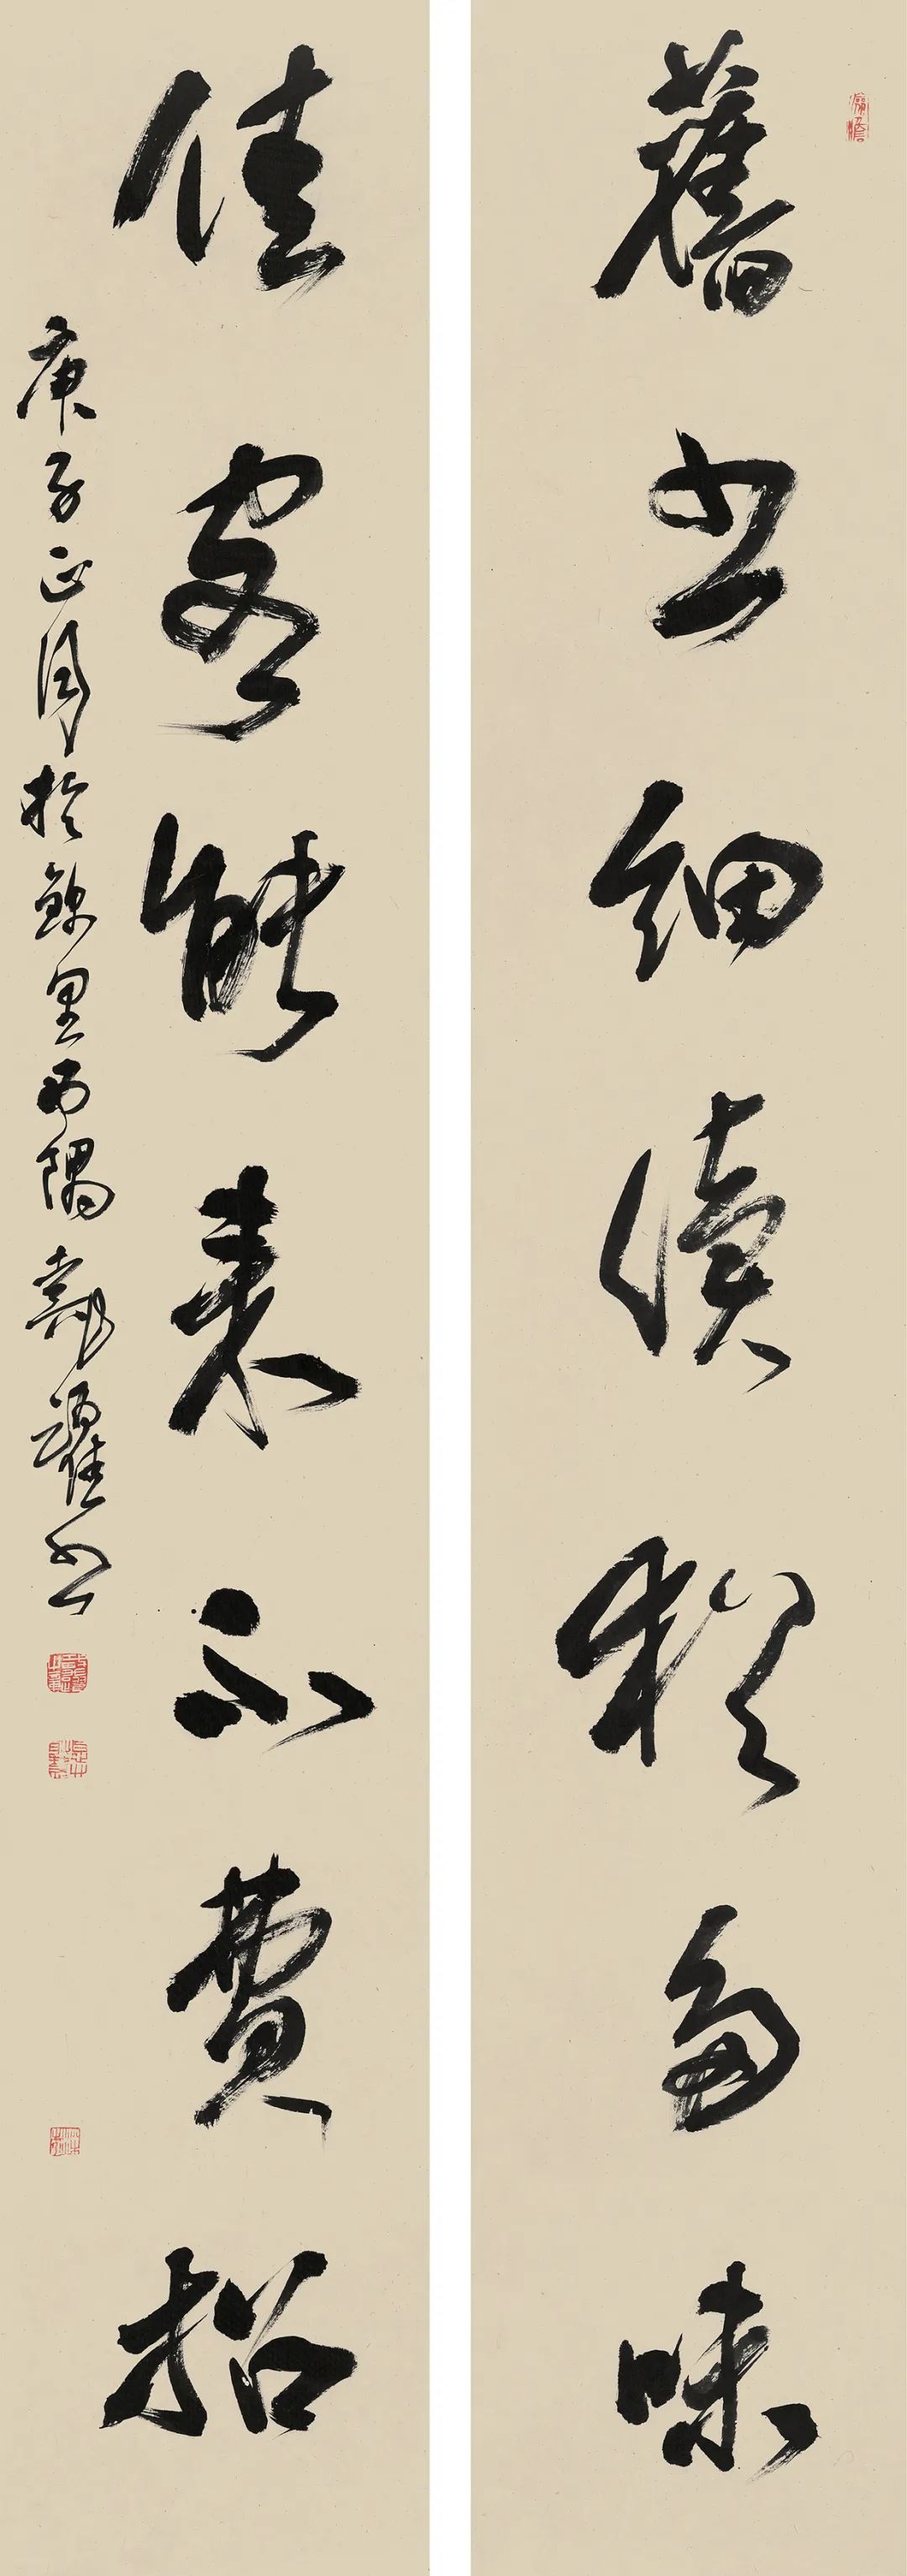 舊書細讀猶多味
佳客能來不費招
庚子正月於錦里西隅躍書